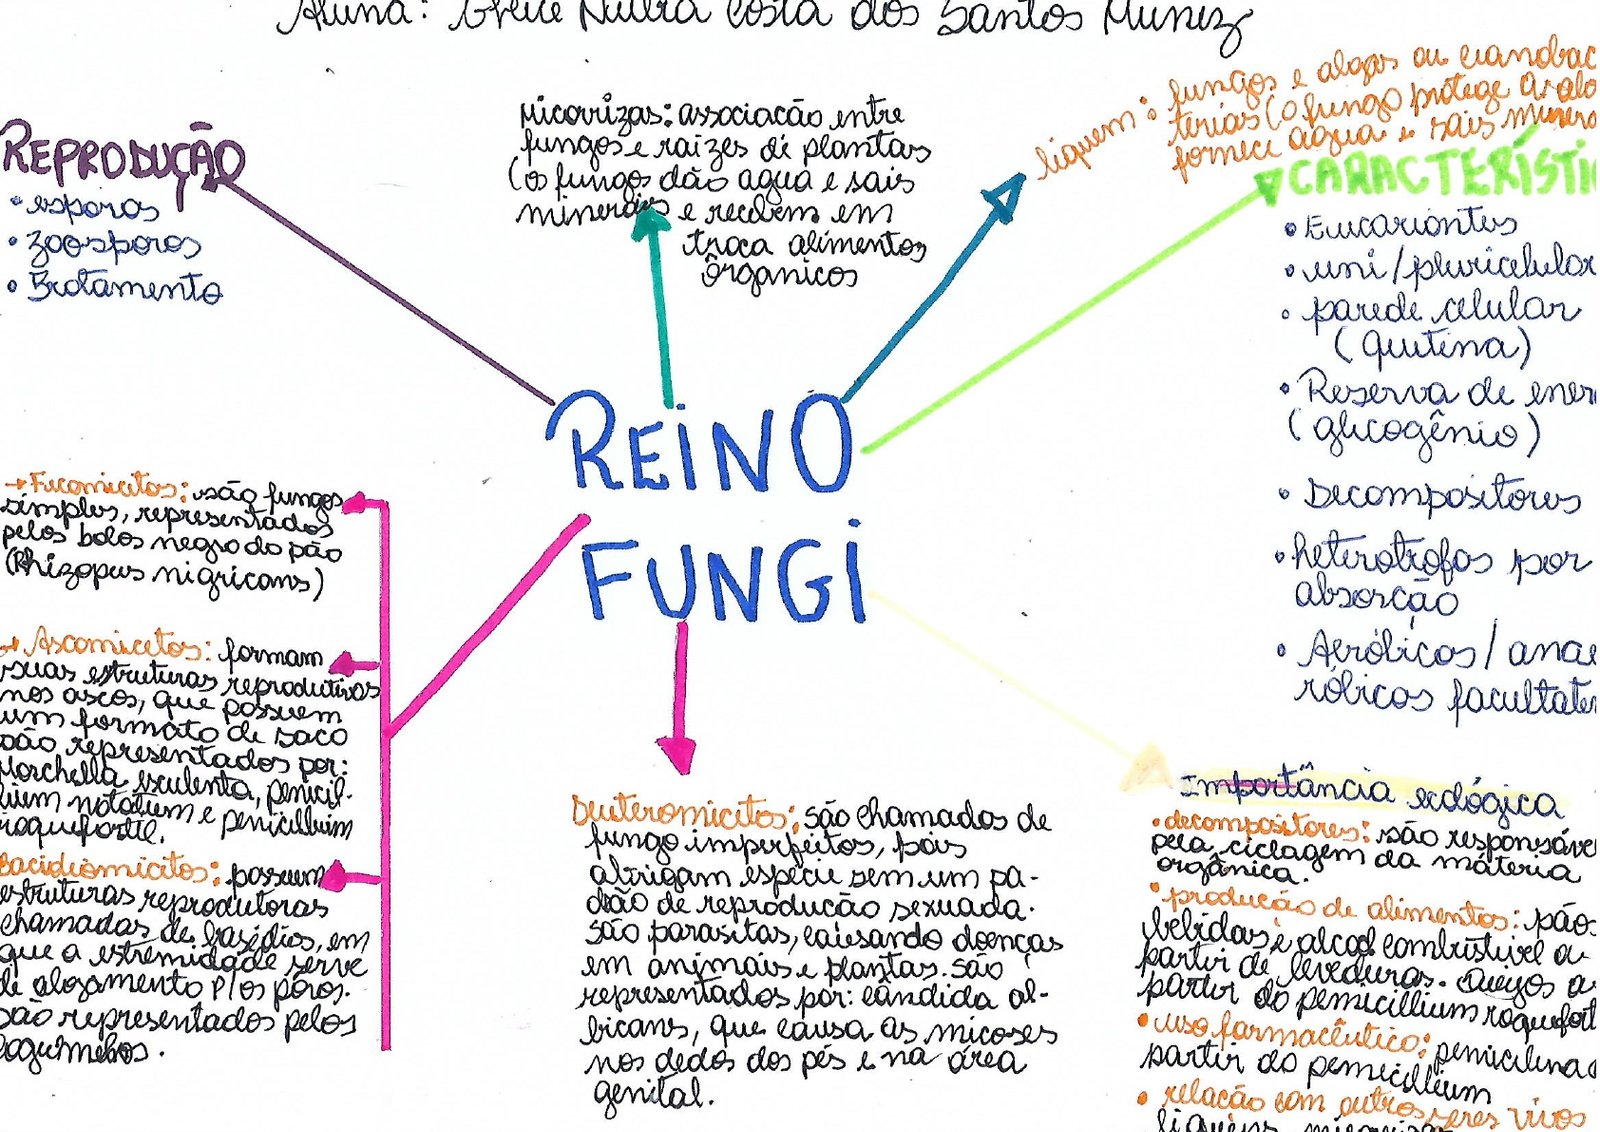 Aluna: Greice Núbia Costa dos Santos Muniz
REPRODUÇÃO
• esporos
• zoosporos
• Brotamento
Micorrizas: associação entre
fungos e raízes de plantas
(os fungos dão agua e sais
minerais e recebem em
troca alimentos
órganicos
liquem: fungos e algas ou cianobac
térias (o fungo protege a alg
fornece água e sais minera
CARACTERÍSTI
• Eucariontes
• uni/pluricelular
• parede celular
(quitina)
• Reserva de ener
(glicogênio)
• Decompositores
• heterotrofos por
absorção
• Aeróbicos / anae
róbicos facultate
REINO
FUNGI
→ Ficomicitos: são fungos
simples, representados
pelos bolos negro do pão
(Rhizopus nigricans)
→ Ascomicetos: formam
suas estruturas reprodutivas
nos ascos, que possuem
um formato de saco
são representados por:
Morchella esculenta, penicil-
lium notatum e penicillium
roquefortte.
Bacidiomicitos: possuem
estruturas reprodutoras
chamadas de basídios, em
que a estremidade serve
de alojamento p/ os póros.
são representados pelos
cogumelos.
Deuteromicitos: são chamados de
fungo imperfeitos, pois
abrigam espécie sem um pa-
drão de reprodução sexuada.
São parasitas, causando doenças
em animais e plantas. são
representados por: cândida al-
bicans, que causa as micoses
nos dedos dos pés e na área
genital.
Importância ecológica
• decompositores: são responsáve
pela ciclagem da máteria
orgânica.
• produção de alimentos: pão
bebidas e alcool combustível a
partir de leveduras. queijos a
partir do penicillium roquefort
• uso farmacêutico: penicilina a
partir do penicillium
• relação com outros seres vivos
liquens, micorrizas